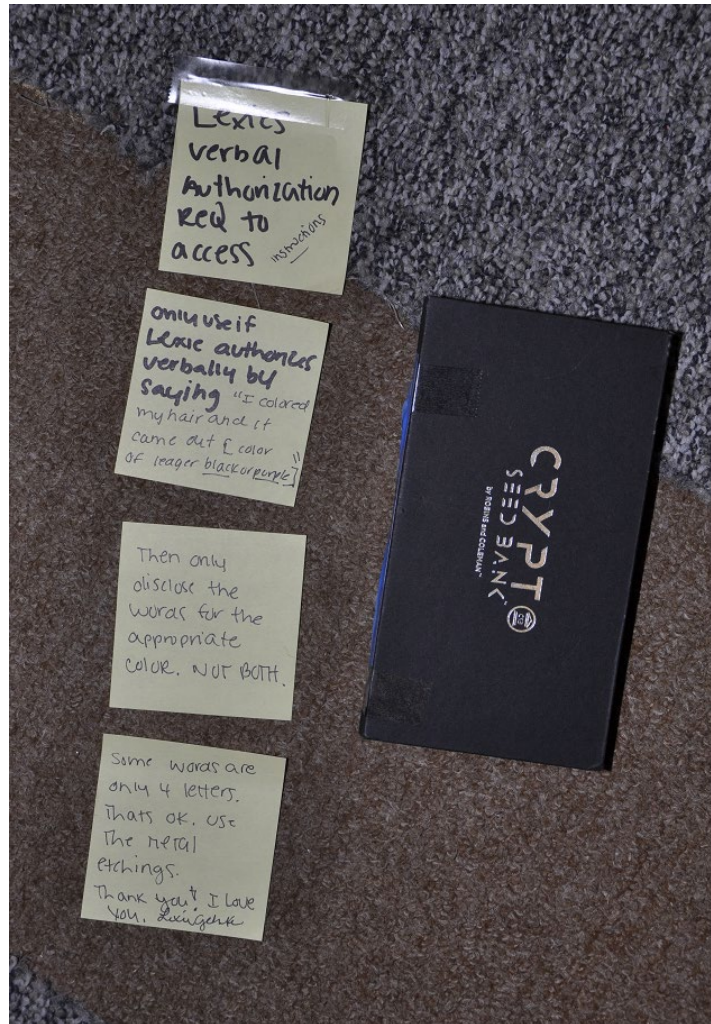 Lexies
verbal
Authorization
Req to
access instructions
only use if
Lexie authorizes
verbally by
saying "I colored
my hair and it
came out [color
of leager black or purple]"
Then only
disclose the
words for the
appropriate
color. NOT BOTH.
Some words are
only 4 letters.
Thats ok. use
The metal
etchings.
Thank you! I Love
You.
CRYPTO
SEED BANK™
by ROBINS and COLEMAN™